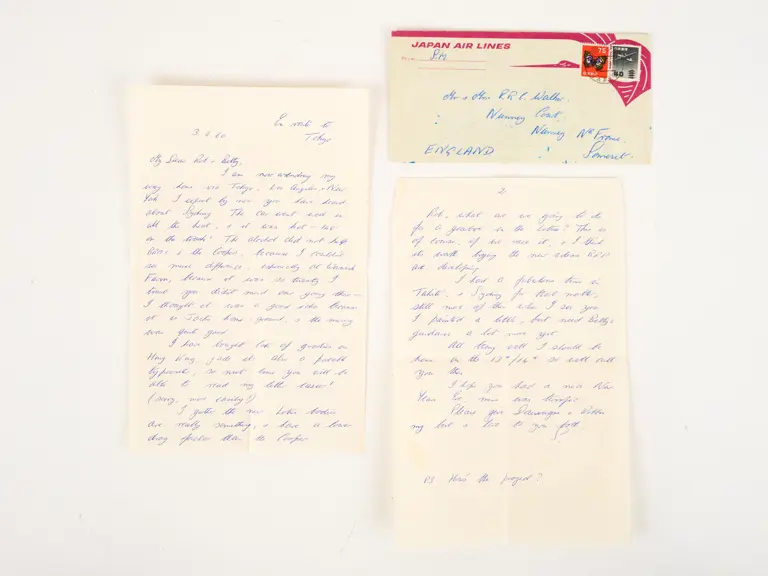 JAPAN AIR LINES
Mr & Mrs R.R.C. Walker.
Nunney Court,
Nunney Nr Frome,
Somerset.
ENGLAND
75
40
En route to
Tokyo
3 60
My Dear Rob & Betty,
I am now wending my
way home via Tokyo, Los Angeles & New
York I expect by now you have heard
about Sydney The car went well in
all the heat, & it was hot - 
on the track! The alcohol did not help
 & the Cooper, because I couldn't
so much difference, especially at Warwick
Farm, because it was so twisty I
 you didn't mind me going there -
I thought it was a good idea because
it is Jack's home-ground, & the money
was quite good.
I have bought lots of goodies in
Hong Kong, also a portable
typewriter, so next time you will be
able to read my letter easier!
(sorry, more easily?)
I gather the new Lotus bodies
are really something, & have a lower
drag factor than the Cooper
2.
Rob, what are we going to do
for a gearbox in the Lotus? This is
of course, if we race it, & I think
its worth buying the new
are developing.
I had a fabulous time in
Tahiti, & Sydney for that matter,
still more of this when I see you
I painted a little, but need Betty's
guidance a lot more yet.
All being well I should be
home on the 13th/14th so will call
you then.
I hope you had a nice New
Years Eve, mine was terrific
Please give & Robbie
my best & love to you both
PS How's the project?